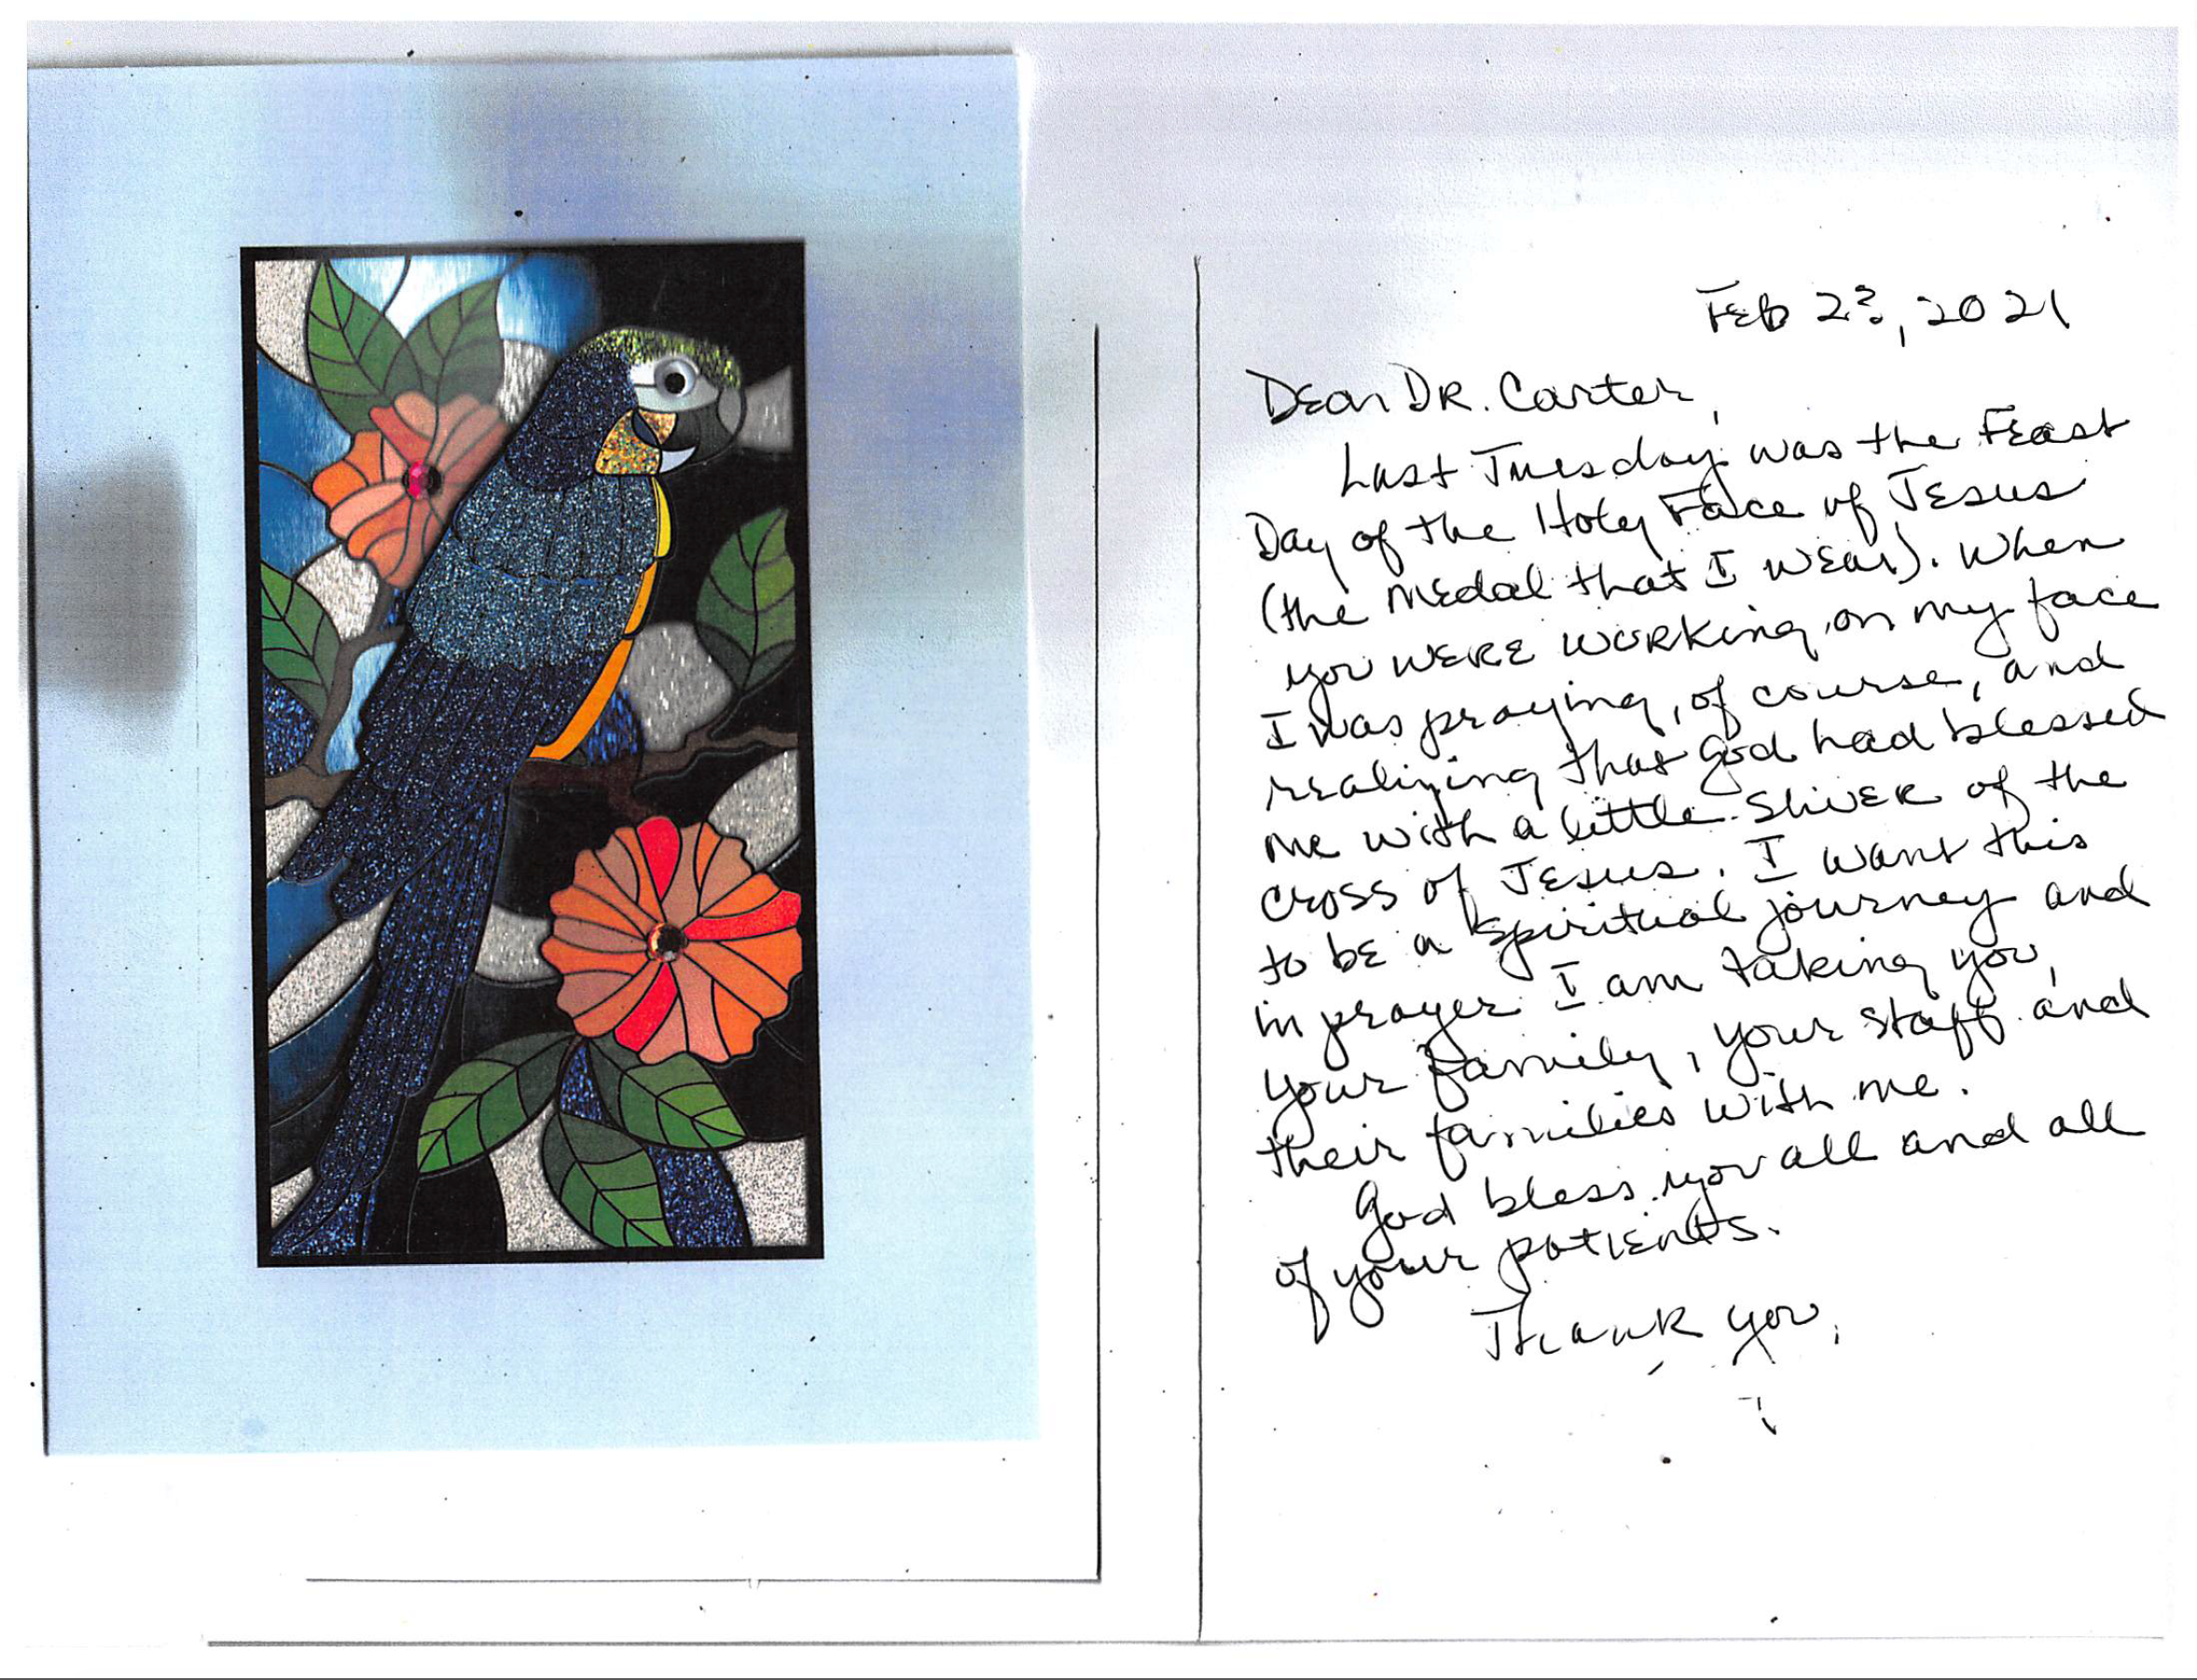 Feb 23, 2021
Dear DR. Carter,
Last Tuesday was the Feast
Day of the Holy Face of Jesus
(the Medal that I wear). When
you were working on my face
I was praying, of course, and
realizing that God had blessed
me with a little sliver of the
cross of Jesus. I want this
to be a spiritual journey and
in prayer I am taking you,
your family, your staff and
their families with me.
God bless you all and all
of your patients.
Thank you,